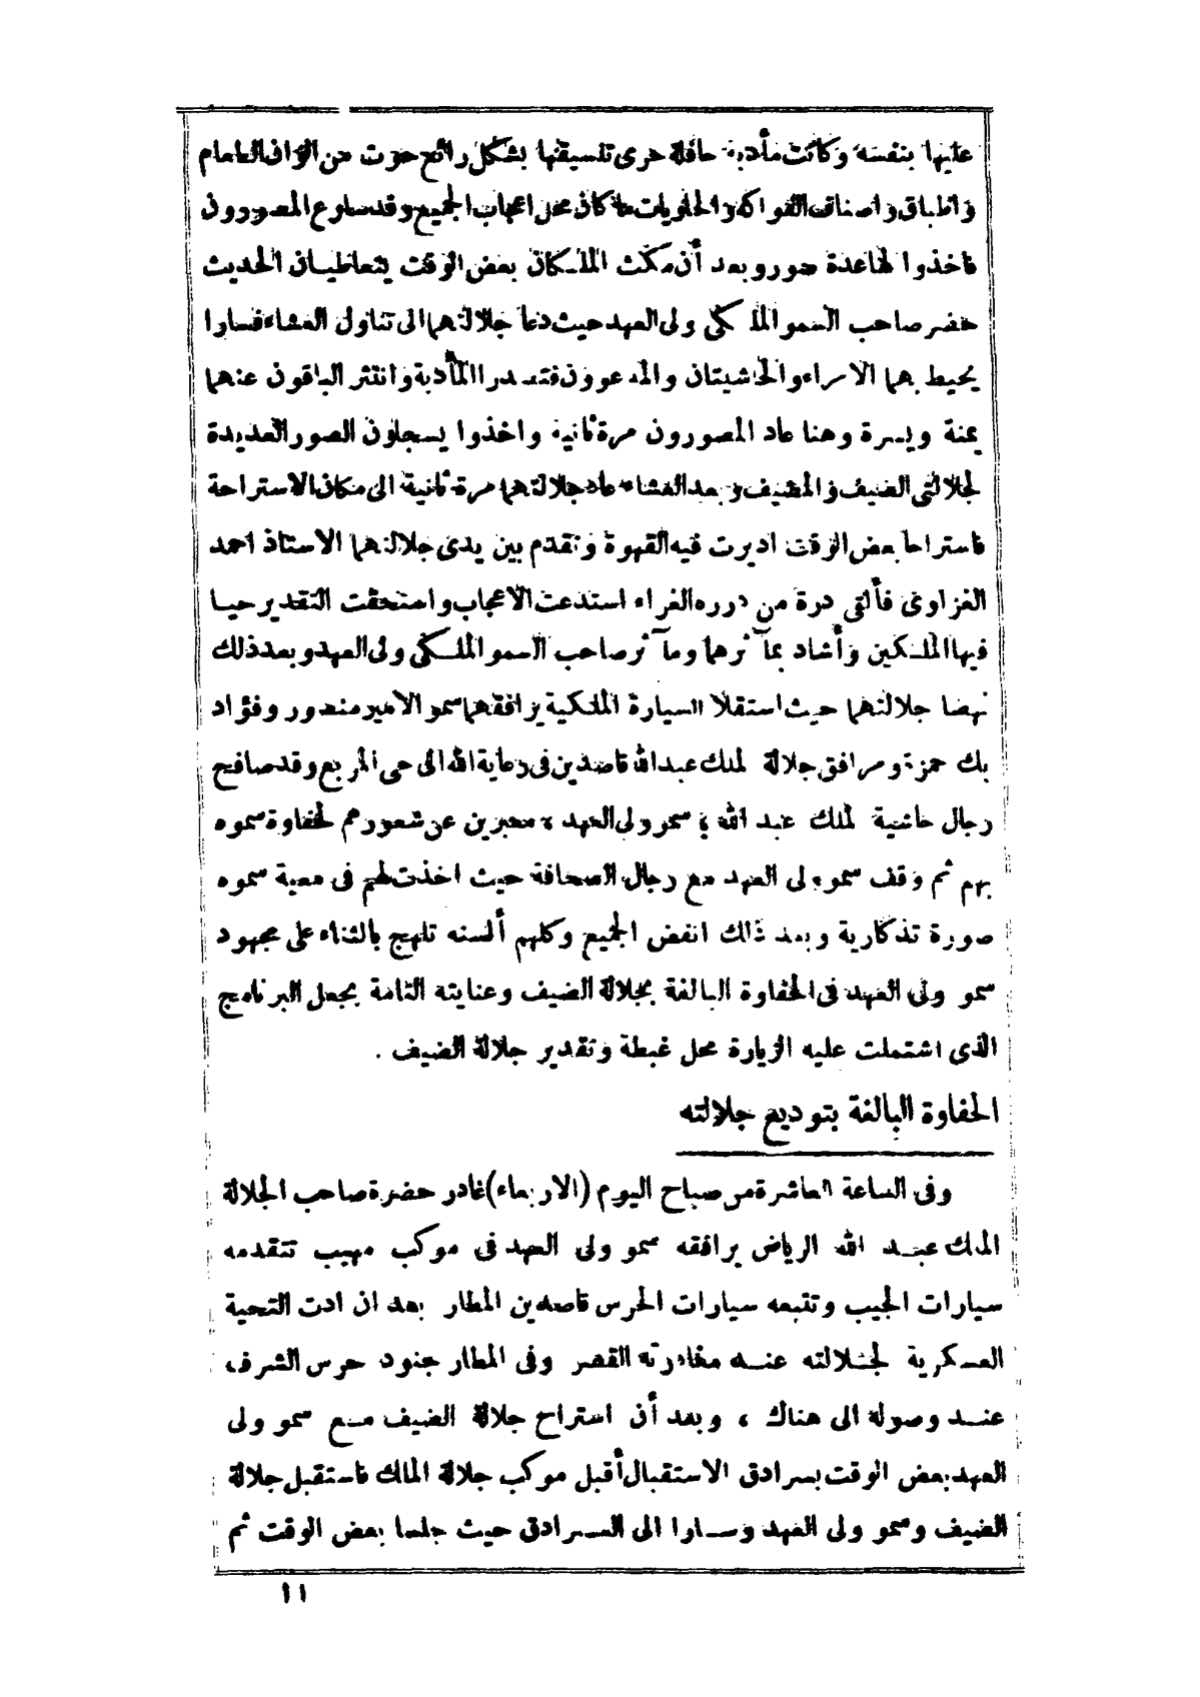 عليها بنفسه وكانت مأدبة حافلة جرى تنسيقها بشكل رائع حوت من الوان الطعام
واطباق واصناف الفواكه والحلويات ما كان محل اعجاب الجميع وقد سارع المصورون
فاخذوا لها عدة صور وبعد أن مكث الملكان بعض الوقت يتعاطيان الحديث
حضر صاحب السمو الملكى ولى العهد حيث دعا جلالتهما الى تناول العشاء فسارا
يحيط بهما الامراء والحاشيتان والمدعوون فتصدرا المأدبة وانتثر الباقون عنهما
يمنة ويسرة وهنا عاد المصورون مرة ثانية واخذوا يسجلون الصور العديدة
لجلالتى الضيف والمضيف وبعد العشاء عاد جلالتهما مرة ثانية الى مكان الاستراحة
فاستراحا بعض الوقت اديرت فيه القهوة وتقدم بين يدى جلالتهما الاستاذ احمد
الغزاوى فألقى درة من درره الغراء استدعت الاعجاب واستحقت التقدير حيا
فيها الملكين وأشاد بمآثرهما ومآثر صاحب السمو الملكى ولى العهد وبعد ذلك
نهضا جلالتهما حيث استقلا السيارة الملكية يرافقهما سمو الامير منصور وفؤاد
بك حمزة ومرافق جلالة لملك عبدالله قاصدين فى رعاية الله الى حى المربع وقد صافح
رجال حاشية لملك عبد الله سمو ولى العهد معبرين عن شعورهم لحفاوة سموه
بهم ثم وقف سمو ولى العهد مع رجال الصحافة حيث اخذت لهم فى معية سموه
صورة تذكارية وبعد ذلك انفض الجميع وكلهم ألسنه تلهج بالثناء على مجهود
سمو ولى العهد فى الحفاوة البالغة بجلالة الضيف وعنايته التامة بجعل البرنامج
الذى اشتملت عليه الزيارة محل غبطة وتقدير جلالة الضيف .
الحفاوة البالغة بتوديع جلالته
وفى الساعة العاشرة من صباح اليوم (الاربعاء) غادر حضرة صاحب الجلالة
الملك عبد الله الرياض يرافقه سمو ولى العهد فى موكب مهيب تتقدمه
سيارات الجيب وتتبعه سيارات الحرس قاصدين المطار بعد ان ادت التحية
العسكرية لجلالته عند مغادرته القصر وفى المطار جنود حرس الشرف،
عند وصوله الى هناك ، وبعد أن استراح جلالة الضيف مع سمو ولى
العهد بعض الوقت بسرادق الاستقبال أقبل موكب جلالة الملك فاستقبل جلالة
الضيف وسمو ولى العهد وسارا الى السرادق حيث جلسا بعض الوقت ثم
١١